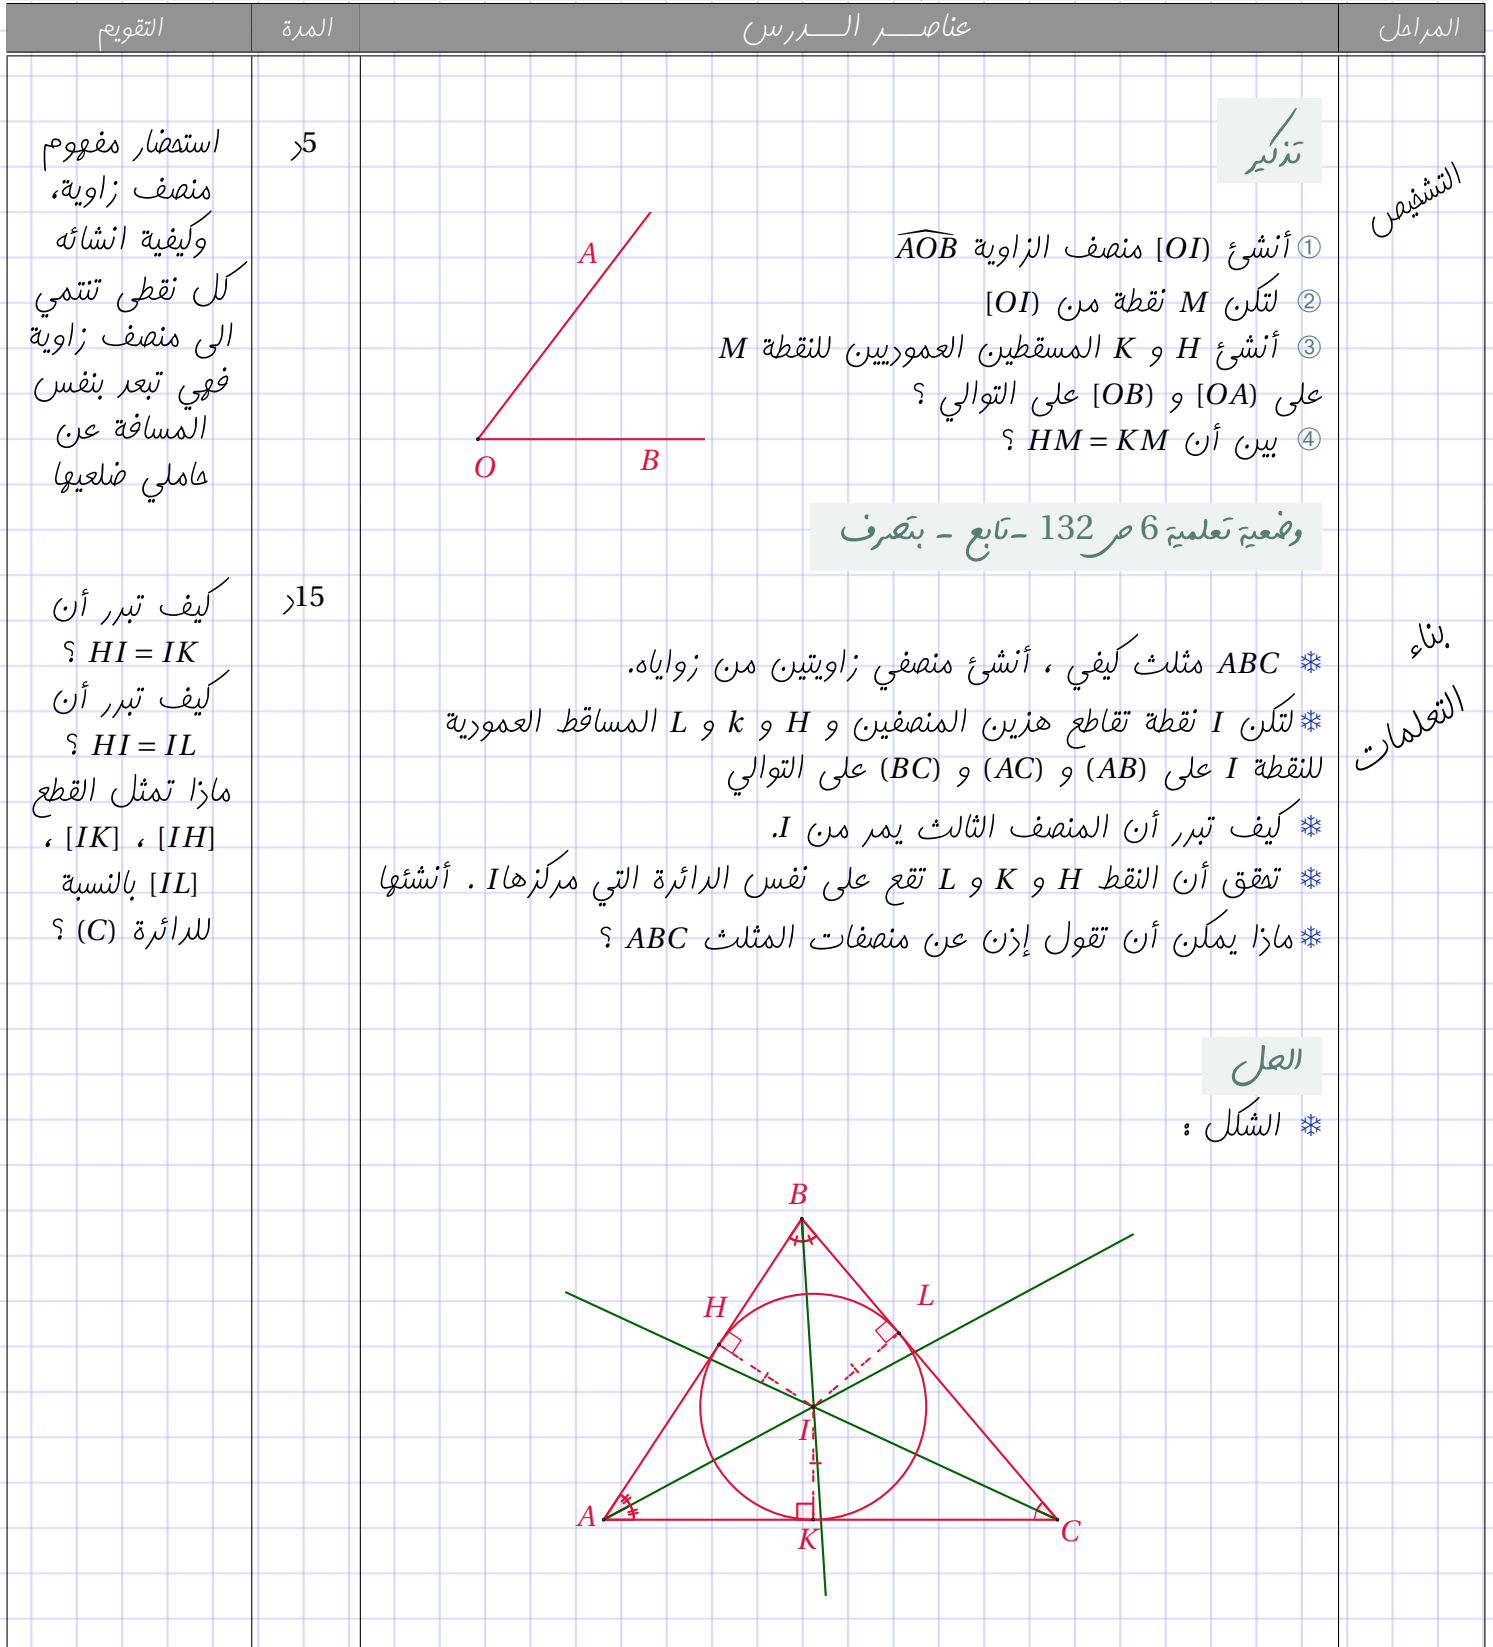 المراحل عناصــر الــدرس المدة التقويم
التشخيص
تذكير
① أنشئ [OI) منصف الزاوية AOB
② لتكن M نقطة من [OI)
③ أنشئ H و K المسقطين العموديين للنقطة M
على [OA) و [OB) على التوالي ؟
④ بين أن HM = KM ؟
A
O
B
5د
استحضار مفهوم
منصف زاوية،
وكيفية انشائه
كل نقطى تنتمي
الى منصف زاوية
فهي تبعد بنفس
المسافة عن
حاملي ضلعيها
بناء
التعلمات
وضعية تعلمية 6 ص 132 -تابع - بتصرف
❄ ABC مثلث كيفي ، أنشئ منصفي زاويتين من زواياه.
❄ لتكن I نقطة تقاطع هذين المنصفين و H و k و L المساقط العمودية
للنقطة I على (AB) و (AC) و (BC) على التوالي
❄ كيف تبرر أن المنصف الثالث يمر من I.
❄ تحقق أن النقط H و K و L تقع على نفس الدائرة التي مركزها I . أنشئها
❄ ماذا يمكن أن تقول إذن عن منصفات المثلث ABC ؟
15د
كيف تبرر أن
HI = IK ؟
كيف تبرر أن
HI = IL ؟
ماذا تمثل القطع
[IH] ، [IK] ،
[IL] بالنسبة
للدائرة (C) ؟
الحل
❄ الشكل :
B
H
L
I
A
K
C